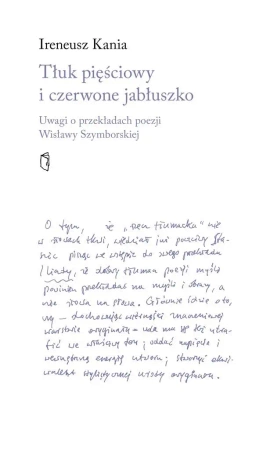 Ireneusz Kania
Tłuk pięściowy
i czerwone jabłuszko
Uwagi o przekładach poezji
Wisławy Szymborskiej
O tym, że „rzecz tłumacka” nie
w słowach tkwi, wiedział już poczciwy
pisząc we wstępie do swego przekładu
Iliady, iż dobry tłumacz poezji myśli
powinien przekładać na myśli i obrazy, a
nie słowa na słowa. Głównie idzie o to,
by – dochowując wierności znaczeniowej
warstwie oryginału – uda mu się też utra-
fić we właściwy ton; oddać napięcie i
wewnętrzną energię utworu; stworzyć ekwi-
walent stylistycznej oryginału.